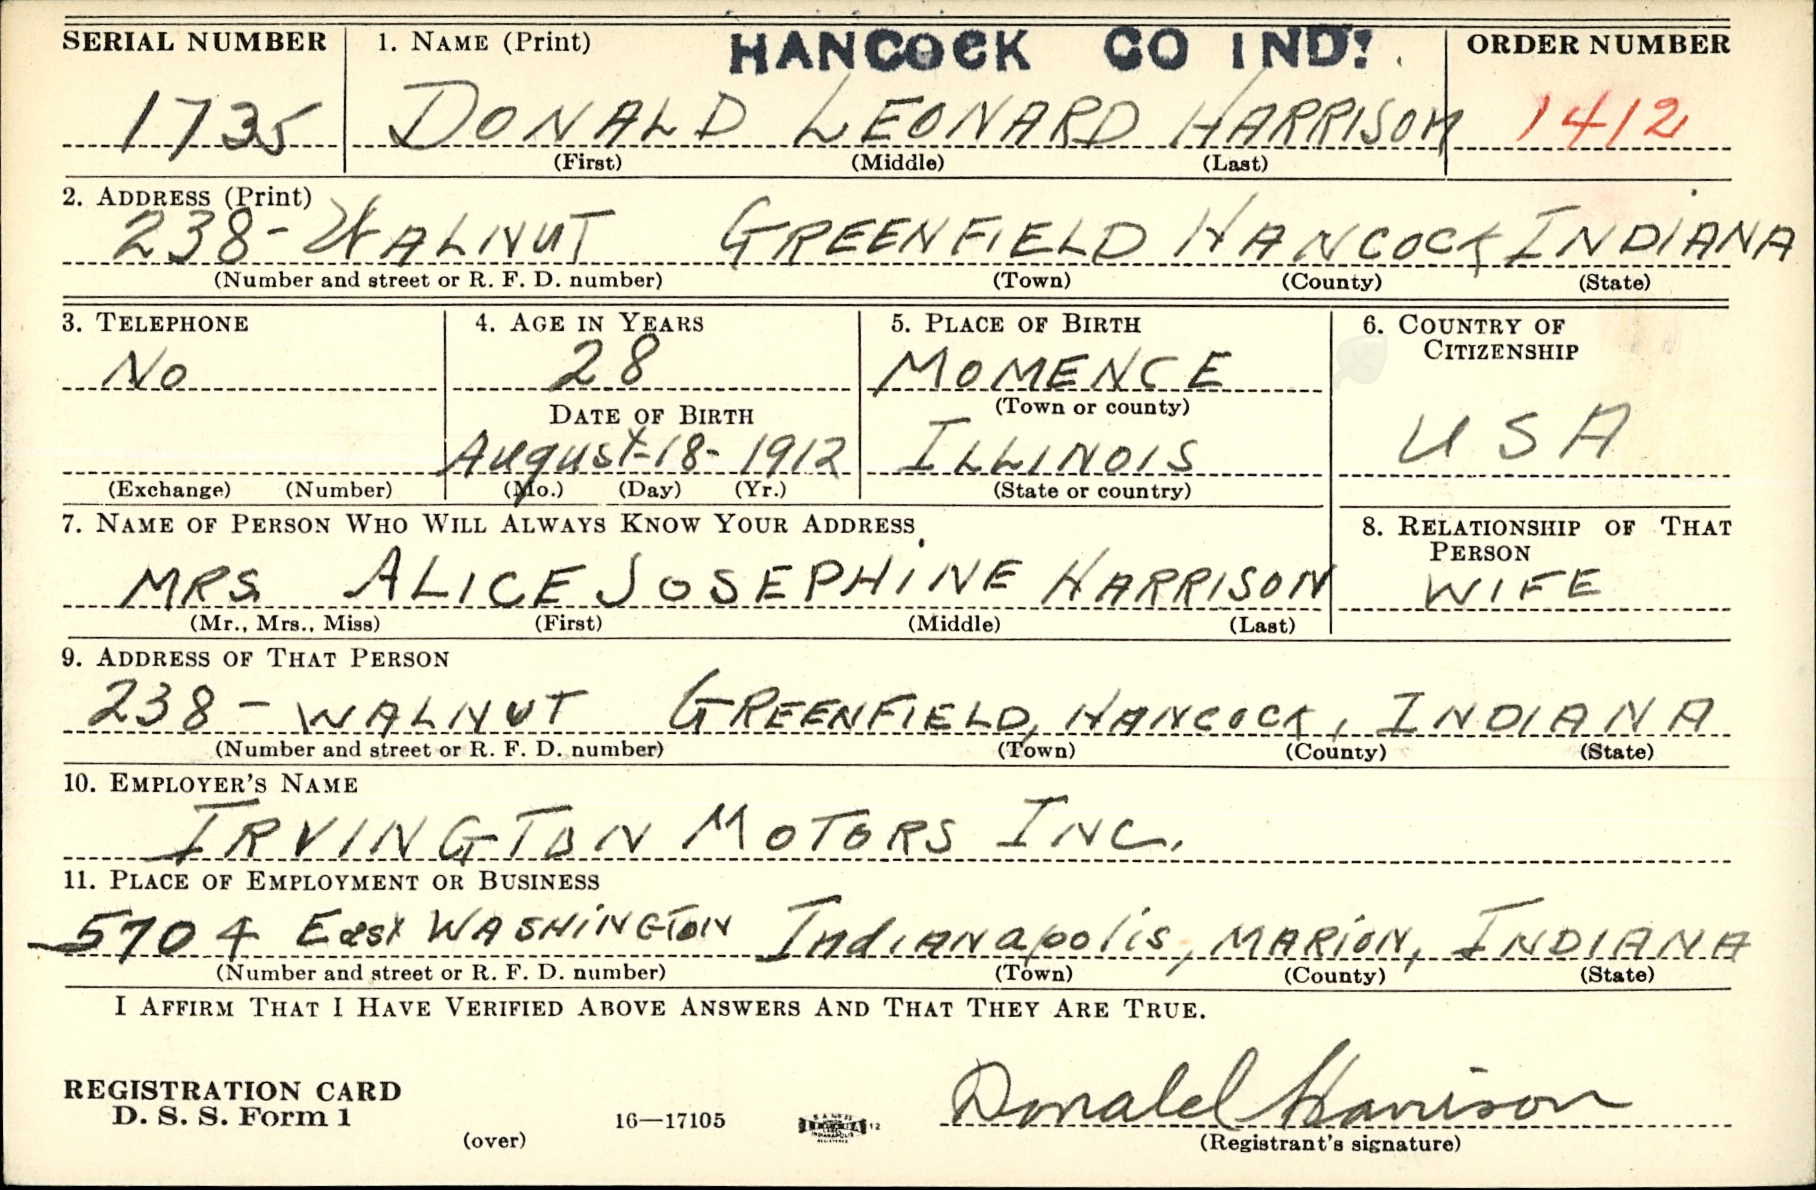 SERIAL NUMBER 1. NAME (Print) HANCOCK CO IND. ORDER NUMBER
1735 DONALD LEONARD HARRISON 1412
(First) (Middle) (Last)
2. ADDRESS (Print)
238 - WALNUT GREENFIELD HANCOCK INDIANA
(Number and street or R. F. D. number) (Town) (County) (State)
3. TELEPHONE 4. AGE IN YEARS 5. PLACE OF BIRTH 6. COUNTRY OF
CITIZENSHIP
No 28 MOMENCE
DATE OF BIRTH (Town or county)
August-18-1912 ILLINOIS USA
(Exchange) (Number) (Mo.) (Day) (Yr.) (State or country)
7. NAME OF PERSON WHO WILL ALWAYS KNOW YOUR ADDRESS 8. RELATIONSHIP OF THAT
PERSON
MRS. ALICE JOSEPHINE HARRISON WIFE
(Mr., Mrs., Miss) (First) (Middle) (Last)
9. ADDRESS OF THAT PERSON
238 - WALNUT GREENFIELD, HANCOCK, INDIANA
(Number and street or R. F. D. number) (Town) (County) (State)
10. EMPLOYER'S NAME
IRVINGTON MOTORS INC.
11. PLACE OF EMPLOYMENT OR BUSINESS
5704 East WASHINGTON Indianapolis, MARION, INDIANA
(Number and street or R. F. D. number) (Town) (County) (State)
I AFFIRM THAT I HAVE VERIFIED ABOVE ANSWERS AND THAT THEY ARE TRUE.
REGISTRATION CARD Donald Harrison
D. S. S. Form 1 16—17105
(over) (Registrant's signature)